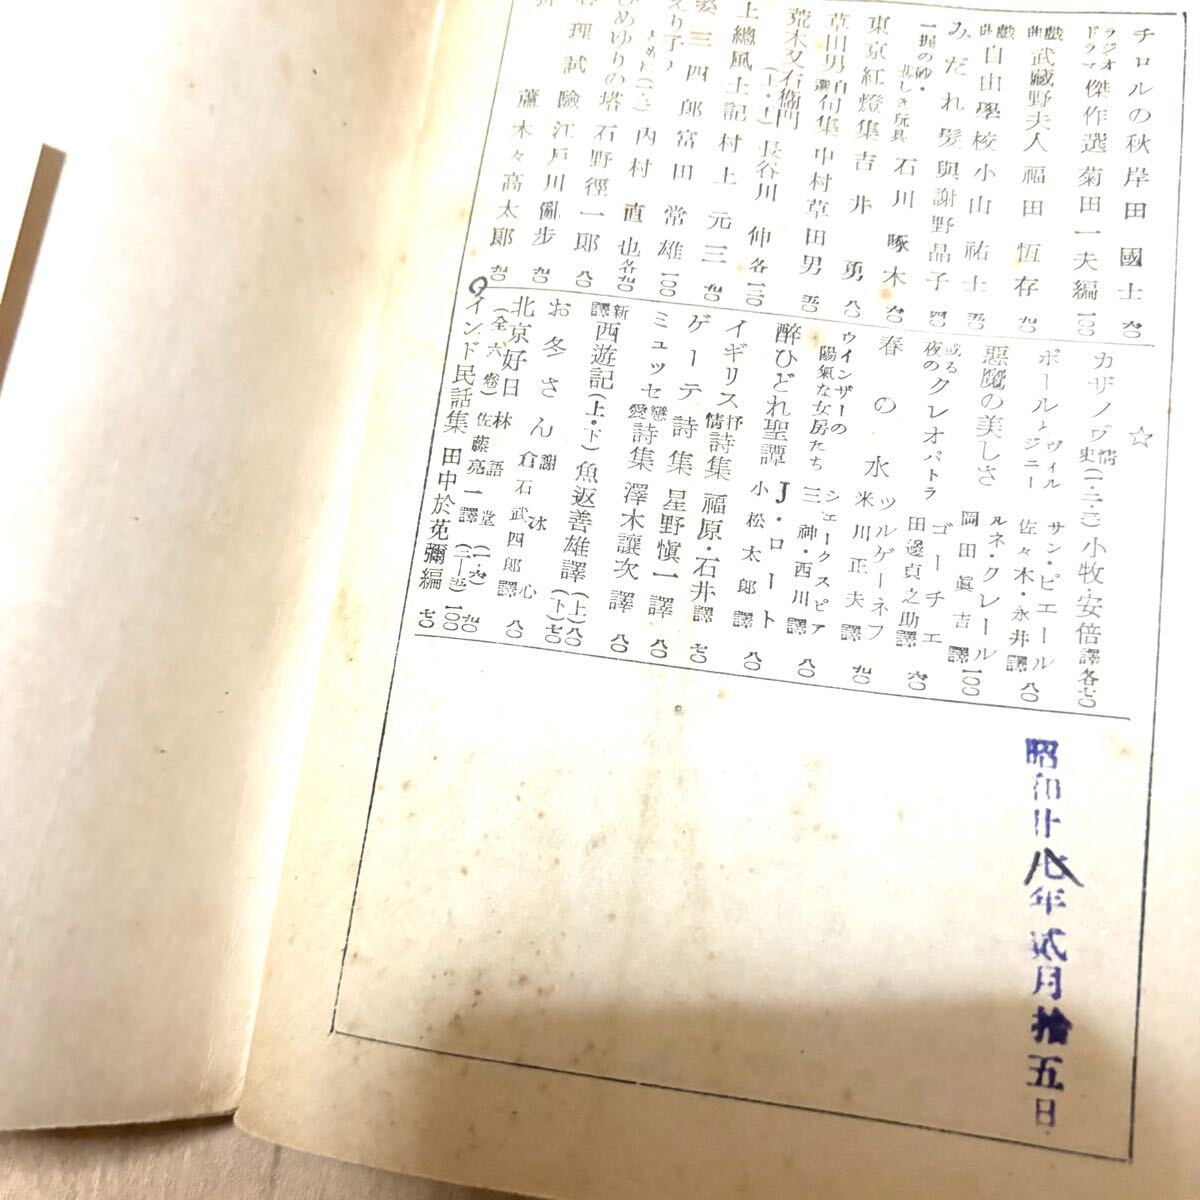 チロルの秋 岸田國士 六〇
ラジオドラマ 傑作選 菊田一夫編 一〇〇
戯曲 武藏野夫人 福田恆存 九〇
戯曲 自由學校 小山祐士 五〇
みだれ髮 與謝野晶子 四〇
一握の砂・悲しき玩具 石川啄木 六〇
東京紅燈集 吉井勇 八〇
草田男自選句集 中村草田男 五〇
荒木又右衞門(上・下) 長谷川伸 各一三〇
上總風土記 村上元三 九〇
姿三四郎 富田常雄 一〇〇
えり子とともに(一・二) 内村直也 各九〇
ひめゆりの塔 石野徑一郎 八〇
心理試驗 江戸川亂歩 九〇
木々高太郎 九〇
☆
カザノヴァ情史(一・二・三) 小牧・安倍譯 各七〇
ポールとヴィルジニー サン・ピエール 佐々木・永井譯 八〇
悪魔の美しさ ルネ・クレール 岡田眞吉譯 一〇〇
或る夜のクレオパトラ ゴーチエ 田邊貞之助譯 六〇
春の水 ツルゲーネフ 米川正夫譯 九〇
ウインザーの陽氣な女房たち シェークスピア 三神・西川譯 八〇
醉ひどれ聖譚 J・ロート 小松太郎譯 八〇
イギリス抒情詩集 福原・石井譯 七〇
ゲーテ詩集 星野愼一譯 八〇
ミュッセ戀愛詩集 澤木讓次譯 八〇
新譯 西遊記(上・下) 魚返善雄譯 (上)八〇 (下)七〇
お冬さん 謝冰心 倉石武四郎譯 八〇
北京好日(全六卷) 林語堂 佐藤亮一譯 (一・六)九〇 (二―五)一〇〇
インド民話集 田中於莵彌編 七〇
昭和廿七年貳月拾五日
八